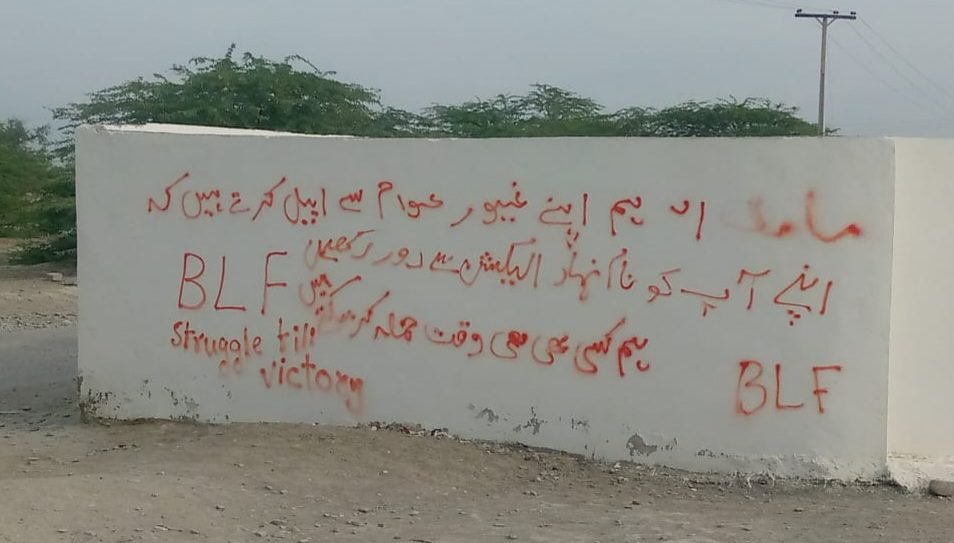 ہم اپنے غیور عوام سے اپیل کرتے ہیں کہ
اپنے آپ کو نام نہاد الیکشن سے دور رکھیں
ہم کسی بھی وقت حملہ کر سکتے ہیں
BLF
struggle till
victory
BLF